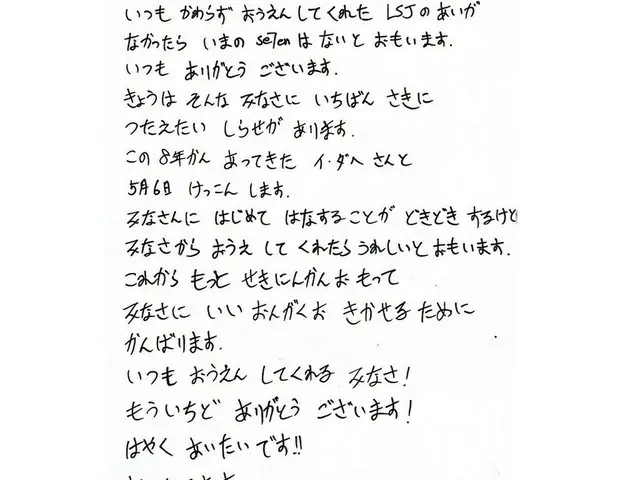 いつも かわらず おうえんしてくれた LSJの あいが
なかったら いまの se7enは ないと おもいます.
いつも ありがとう ございます.
きょうは そんな みなさに いちばん さきに
つたえたい しらせが あります.
この 8年かん あってきた イ・ダヘ さんと
5月6日 けっこん します.
みなさんに はじめて はなすることが どきどき するけど
みなさから おうえ して くれたら うれしいと おもいます.
これから もっと せきにんかんお もって
みなさに いい おんがくお きかせる ために
がんばります.
いつも おうえん してくれる みなさ!
もういちど ありがとう ございます!
はやく あいたいです!!